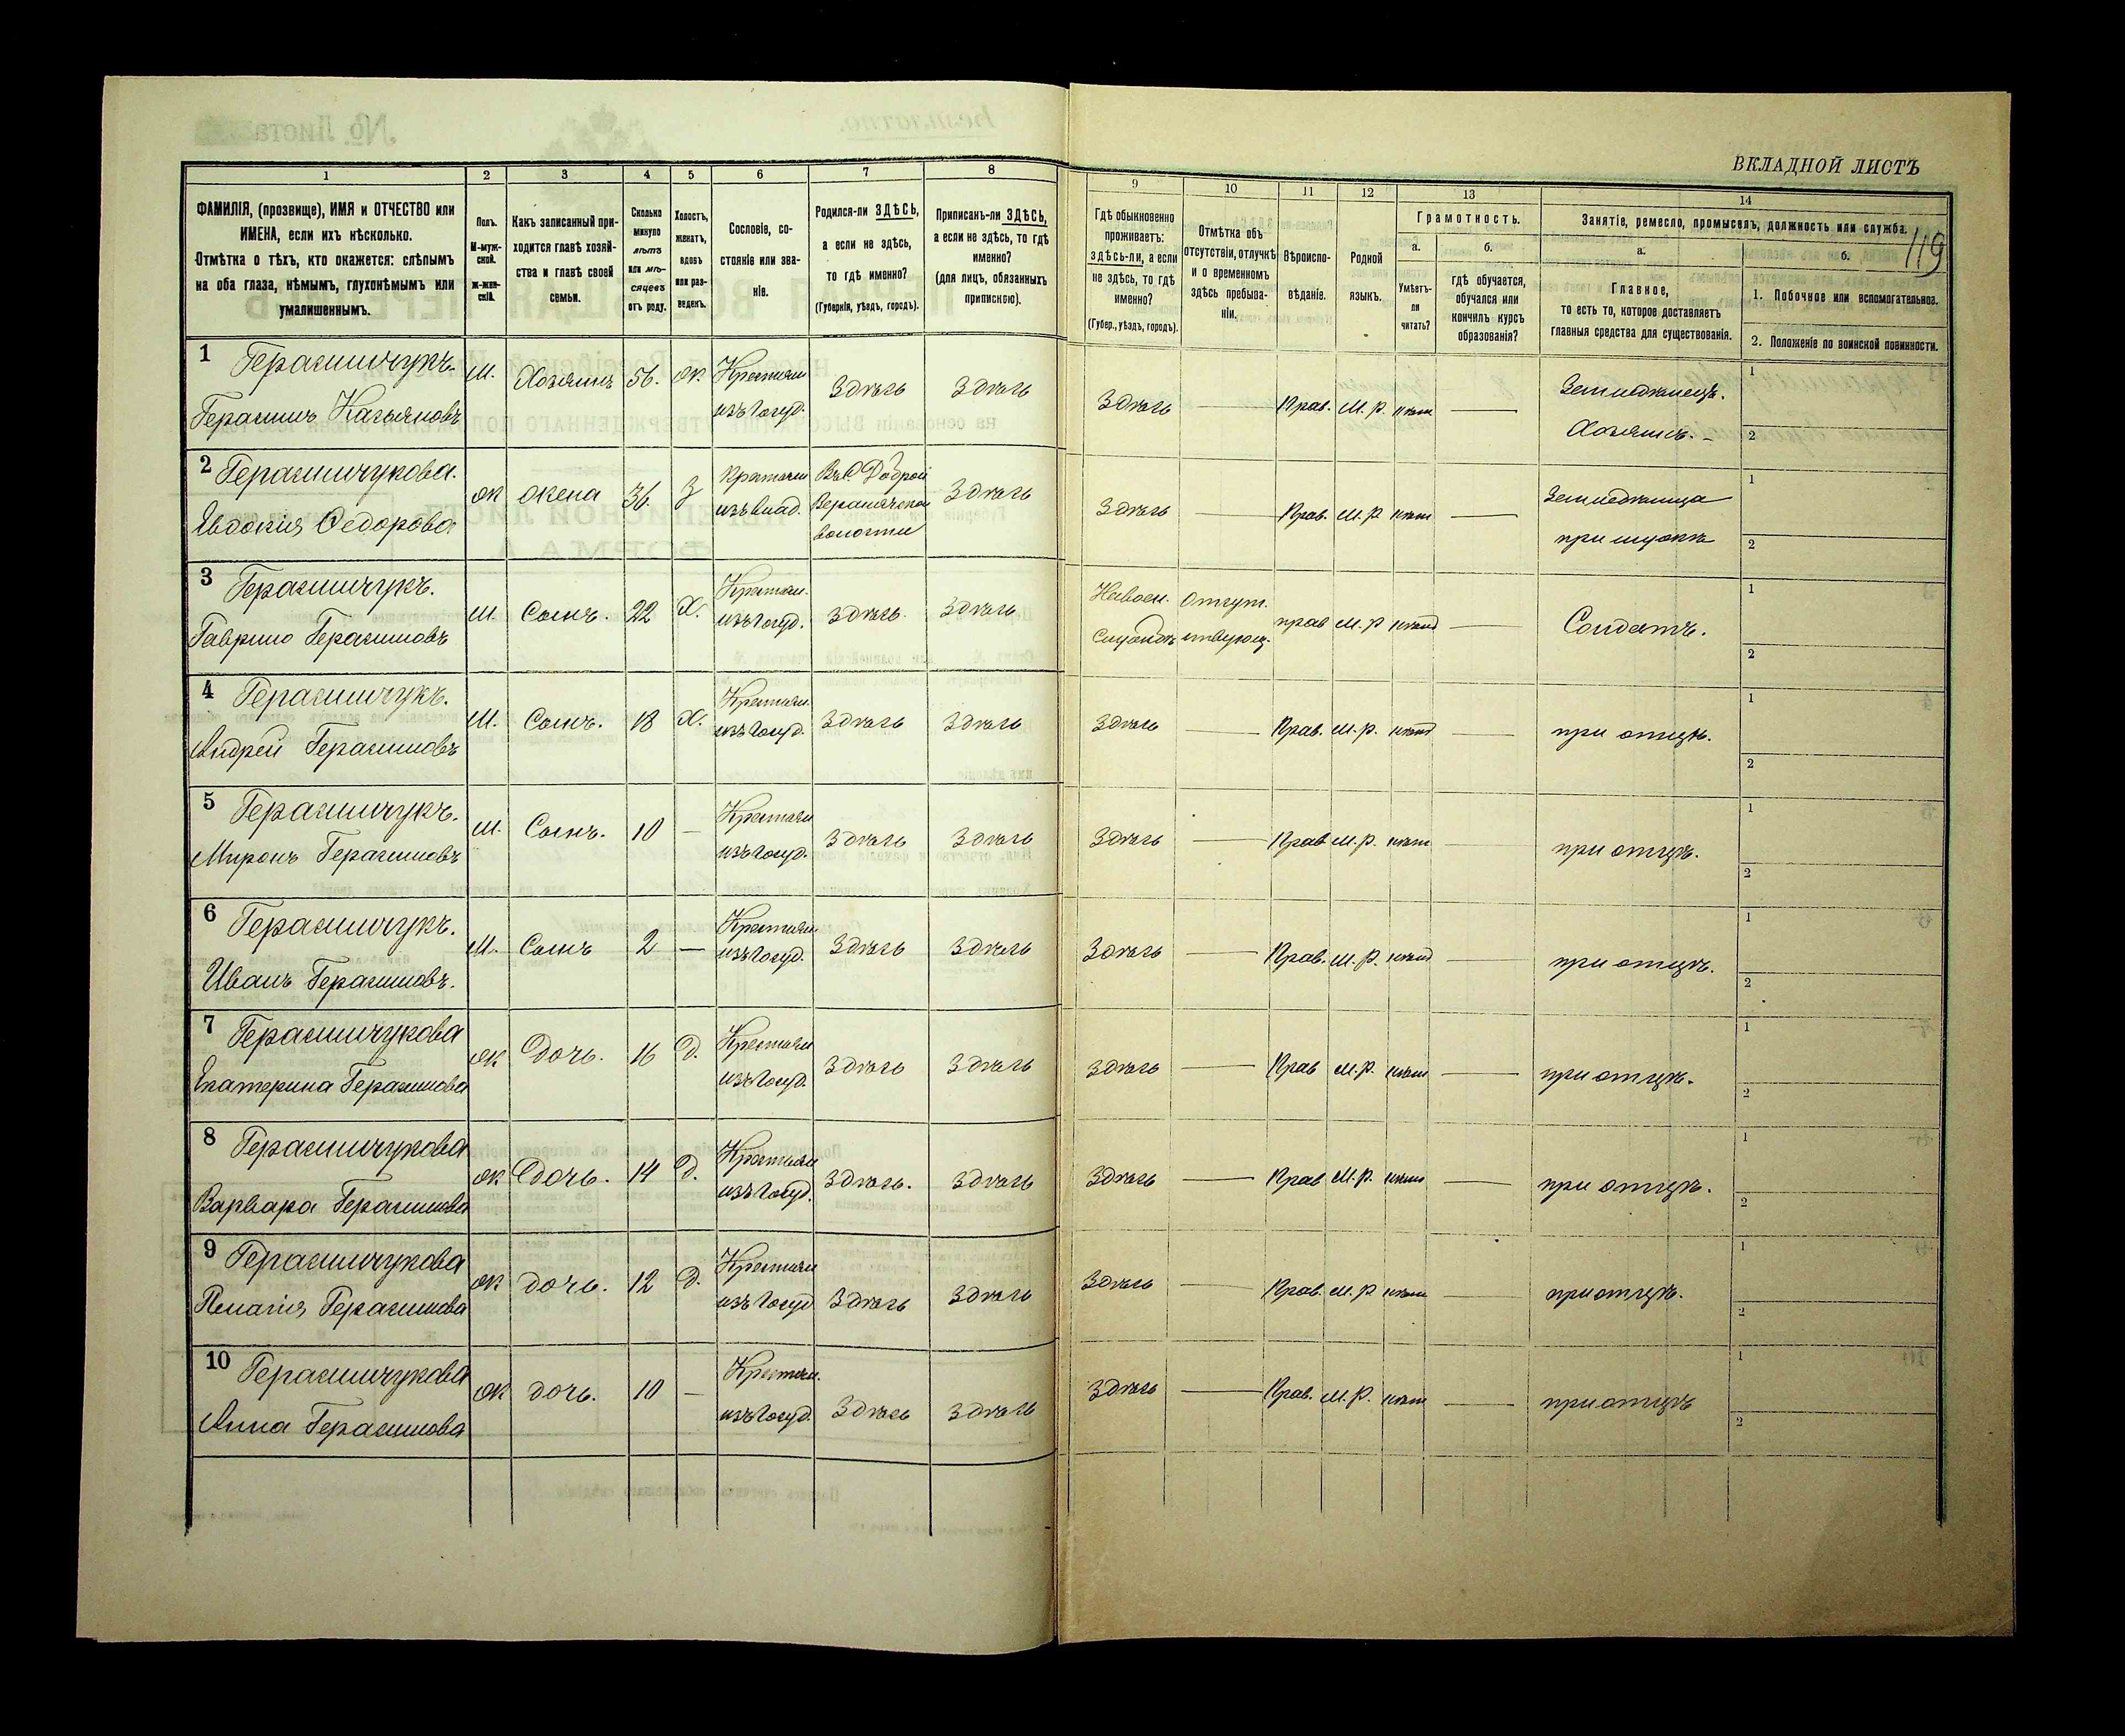 ВКЛАДНОЙ ЛИСТЪ
119
1 2 3 4 5 6 7 8 9 10 11 12 13 14
ФАМИЛІЯ, (прозвище), ИМЯ и ОТЧЕСТВО или ИМЕНА, если ихъ нѣсколько.
Отмѣтка о тѣхъ, кто окажется: слѣпымъ на оба глаза, нѣмымъ, глухонѣмымъ или умалишеннымъ.
Полъ. М-мужской. ж-женскій.
Какъ записанный приходится главѣ хозяйства и главѣ своей семьи.
Сколько минуло лѣтъ или мѣсяцевъ отъ роду.
Холостъ, женатъ, вдовъ или разведенъ.
Сословіе, состояніе или званіе.
Родился-ли ЗДѢСЬ, а если не здѣсь, то гдѣ именно? (Губернія, уѣздъ, городъ).
Приписанъ-ли ЗДѢСЬ, а если не здѣсь, то гдѣ именно? (для лицъ, обязанныхъ припискою).
Гдѣ обыкновенно проживаетъ: здѣсь-ли, а если не здѣсь, то гдѣ именно? (Губер., уѣздъ, городъ).
Отмѣтка объ отсутствіи, отлучкѣ и о временномъ здѣсь пребываніи.
Вѣроисповѣданіе.
Родной языкъ.
Грамотность.
а. Умѣетъ-ли читать?
б. гдѣ обучается, обучался или кончилъ курсъ образованія?
Занятіе, ремесло, промыселъ, должность или служба.
а. Главное, то есть то, которое доставляетъ главныя средства для существованія.
б.
1. Побочное или вспомогательное.
2. Положеніе по воинской повинности.
1 Герасимчукъ. М. Хозяинъ 56. ж. Крестьян. Здѣсь Здѣсь Здѣсь — Прав. М. р. нѣт — Земледѣлецъ. 1
Герасимъ Касьяновъ изъ госуд. Хозяинъ. 2
2 Герасимчукова. ж жена 36. З Крестьян Въ С. Доброй Здѣсь Здѣсь — Прав. М. р нѣт — Земледѣлица 1
Евдокія Федорова изъ влад. волости при мужѣ 2
3 Герасимчукъ. М. Сынъ. 22 Х. Крестьян. Здѣсь. Здѣсь На воен. Отсут. прав М. р нѣт — Солдатъ. 1
Гаврило Герасимовъ изъ госуд. службѣ ствующ. 2
4 Герасимчукъ. М. Сынъ. 18 Х. Крестьян. Здѣсь Здѣсь Здѣсь — Прав. М. р. нѣт — при отцѣ. 1
Андрей Герасимовъ изъ госуд. 2
5 Герасимчукъ. М. Сынъ. 10 — Крестьян Здѣсь Здѣсь Здѣсь — Прав М. р. нѣт — при отцѣ. 1
Миронъ Герасимовъ изъ госуд. 2
6 Герасимчукъ. М. Сынъ 2 — Крестьян. Здѣсь Здѣсь Здѣсь — Прав. М. р. нѣт — при отцѣ. 1
Иванъ Герасимовъ. изъ госуд. 2
7 Герасимчукова ж Дочь. 16 Д. Крестьян Здѣсь Здѣсь Здѣсь — Прав М. р. нѣт — при отцѣ. 1
Екатерина Герасимова изъ госуд. 2
8 Герасимчукова ж Дочь. 14 Д. Крестьян Здѣсь. Здѣсь Здѣсь — Прав М. р. нѣт — при отцѣ. 1
Варвара Герасимова изъ госуд. 2
9 Герасимчукова ж дочь. 12 Д. Крестьян Здѣсь Здѣсь Здѣсь — Прав. М. р нѣт — при отцѣ. 1
Пелагія Герасимова изъ госуд 2
10 Герасимчукова ж дочь. 10 — Крестьян. Здѣсь Здѣсь Здѣсь — Прав. М. р. нѣт — при отцѣ 1
Анна Герасимова изъ госуд. 2